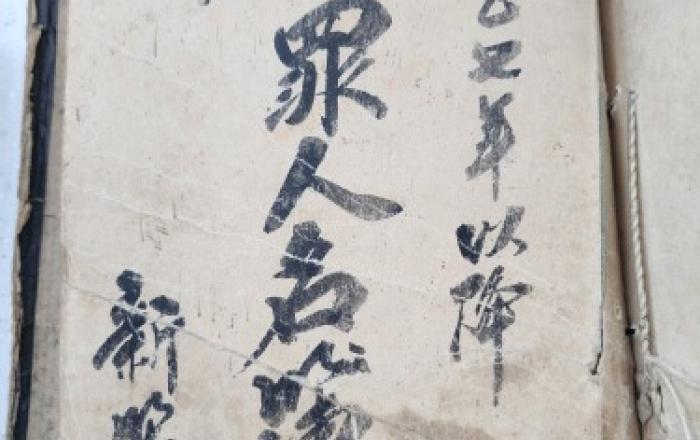 乙丑年以降
罪人名簿
新